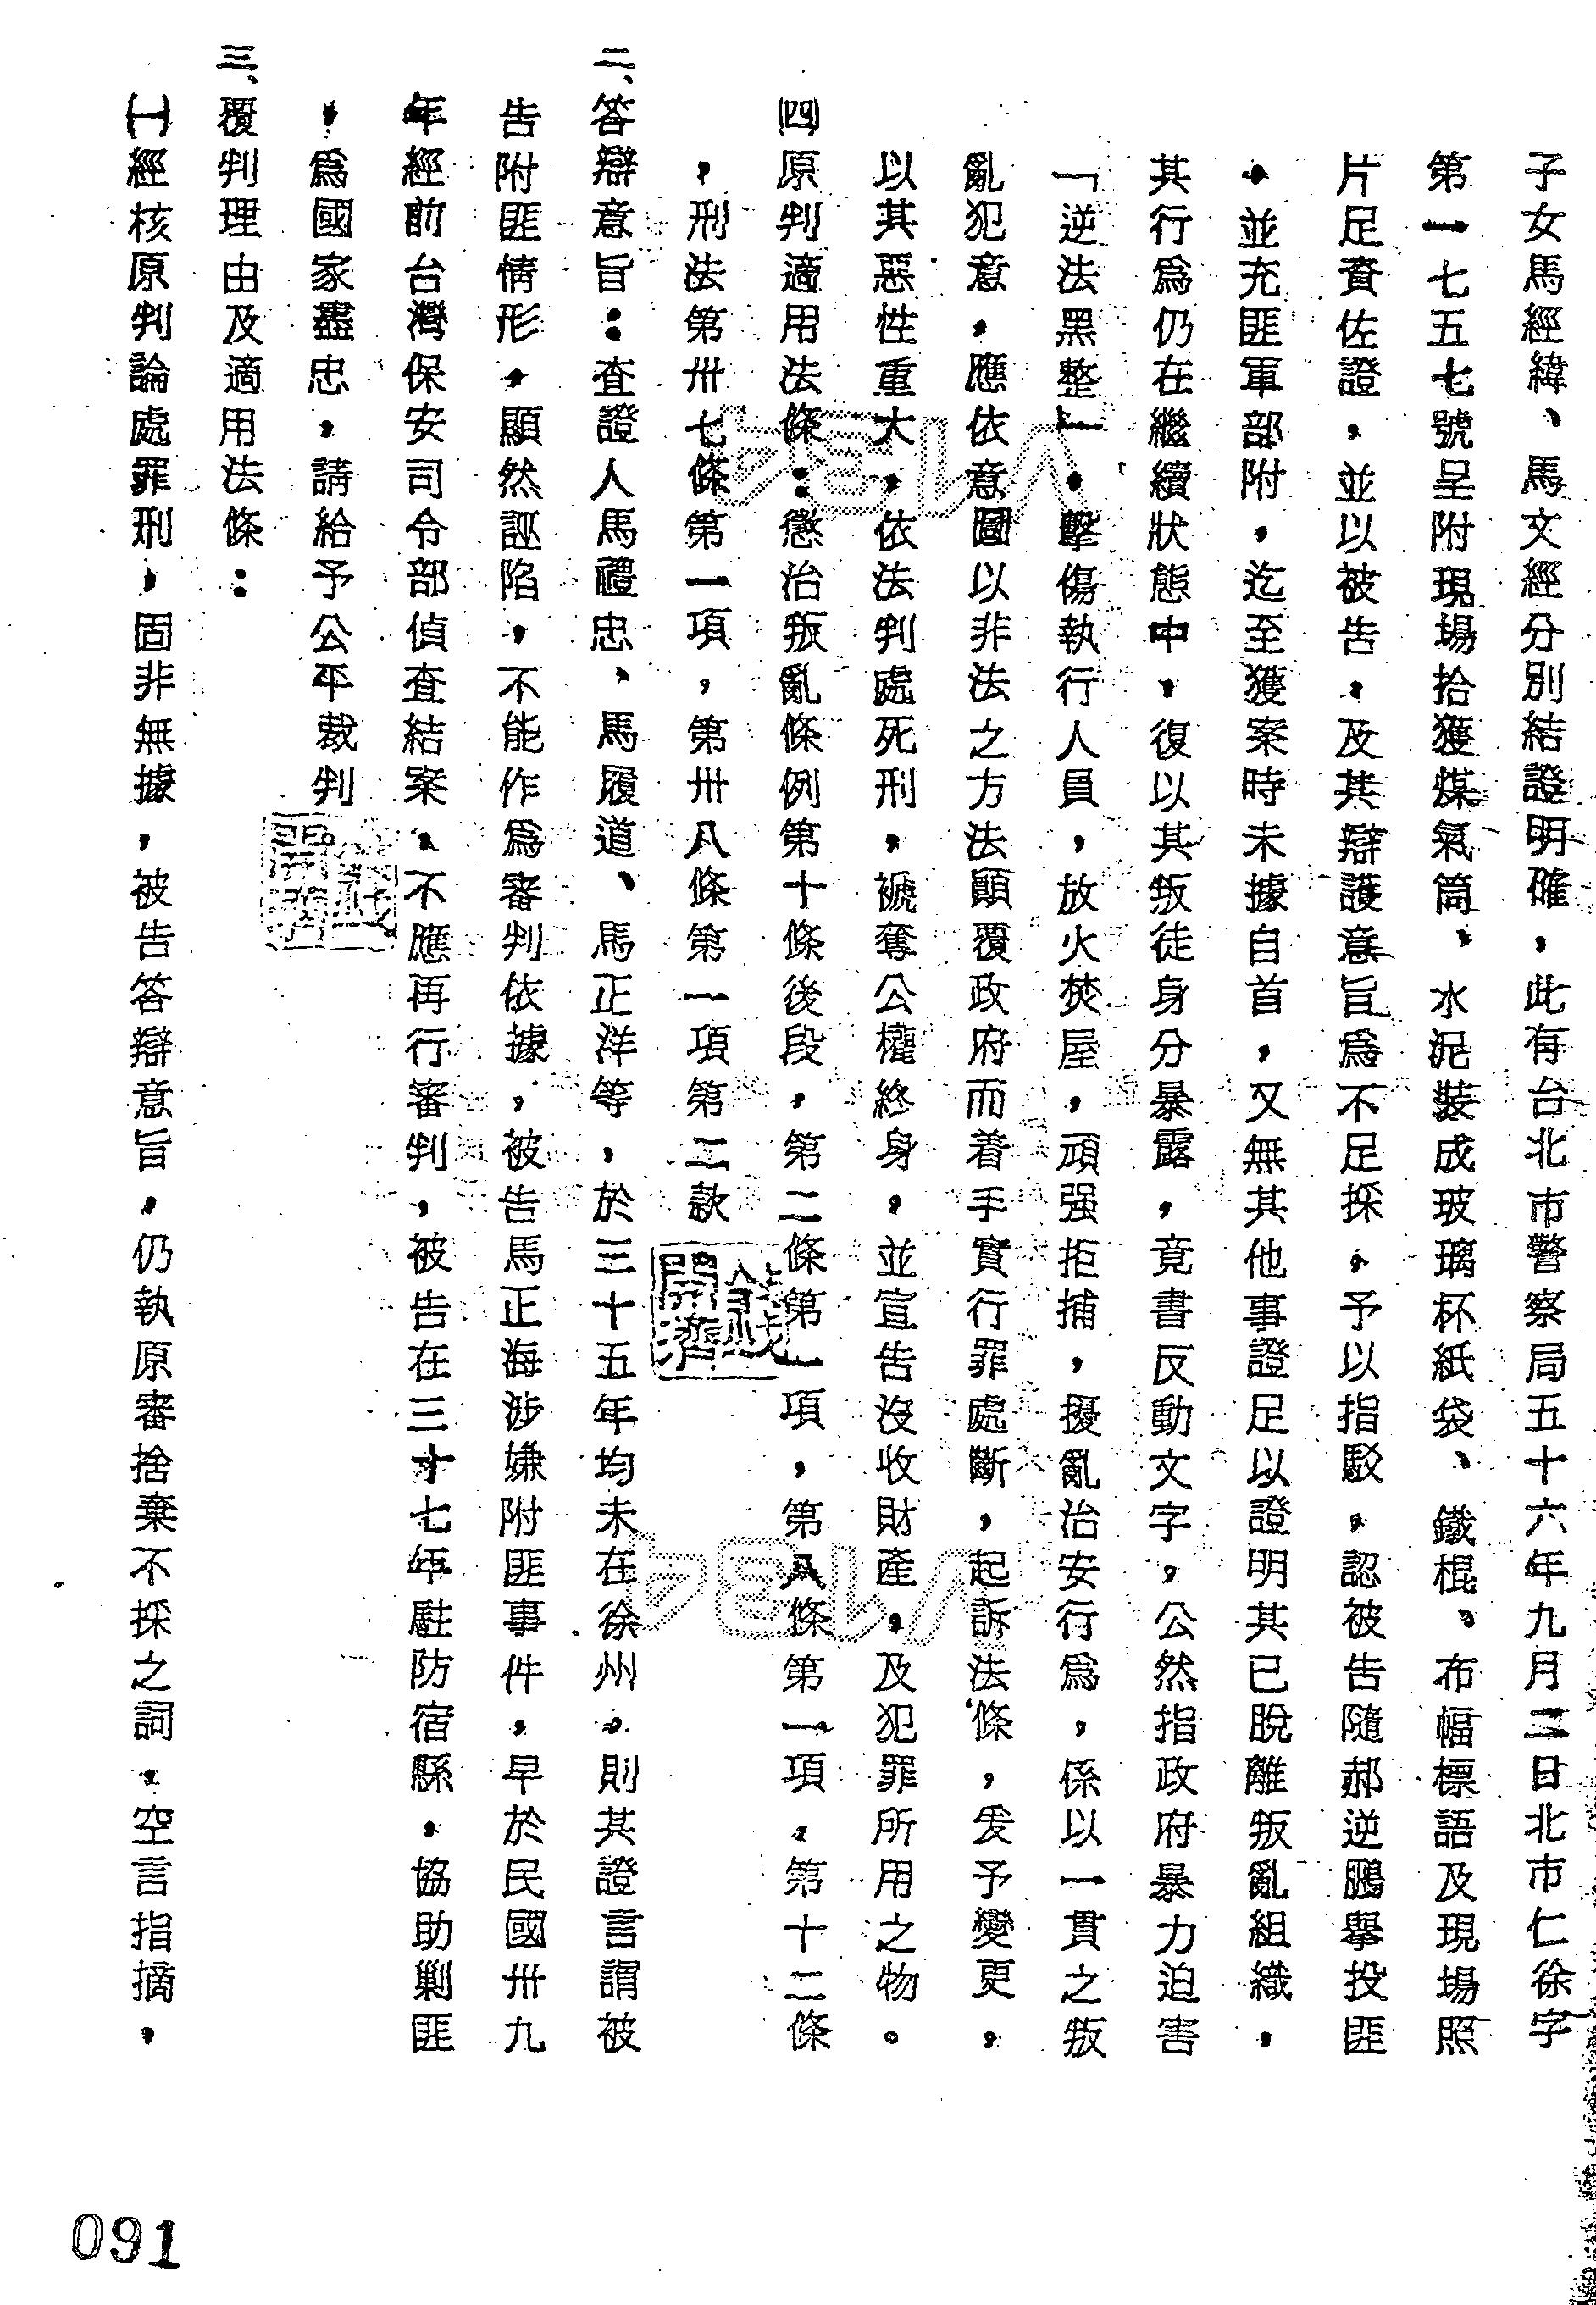 子女馬經緯、馬文經分別結證明確，此有台北市警察局五十六年九月二日北市仁徐字
第一七五七號呈附現場拾獲煤氣筒、水泥裝成玻璃杯紙袋、鐵棍、布幅標語及現場照
片足資佐證，並以被告，及其辯護意旨爲不足採，予以指駁，認被告隨郝逆鵬舉投匪
，並充匪軍部附，迄至獲案時未據自首，又無其他事證足以證明其已脫離叛亂組織，
其行爲仍在繼續狀態中，復以其叛徒身分暴露，竟書反動文字，公然指政府暴力迫害
「逆法黑整」，擊傷執行人員，放火焚屋，頑强拒捕，擾亂治安行爲，係以一貫之叛
亂犯意，應依意圖以非法之方法顚覆政府而着手實行罪處斷，起訴法條，爰予變更，
以其惡性重大，依法判處死刑，褫奪公權終身，並宣告沒收財產，及犯罪所用之物。
㈣原判適用法條：懲治叛亂條例第十條後段，第二條第一項，第八條第一項，第十二條
，刑法第卅七條第一項，第卅八條第一項第二款
二、答辯意旨：查證人馬禮忠、馬履道、馬正洋等，於三十五年均未在徐州，則其證言謂被
告附匪情形，顯然誣陷，不能作爲審判依據，被告馬正海涉嫌附匪事件，早於民國卅九
年經前台灣保安司令部偵查結案，不應再行審判，被告在三十七年駐防宿縣，協助剿匪
，爲國家盡忠，請給予公平裁判
三、覆判理由及適用法條：
㈠經核原判論處罪刑，固非無據，被告答辯意旨，仍執原審捨棄不採之詞，空言指摘，
錢開濟
091